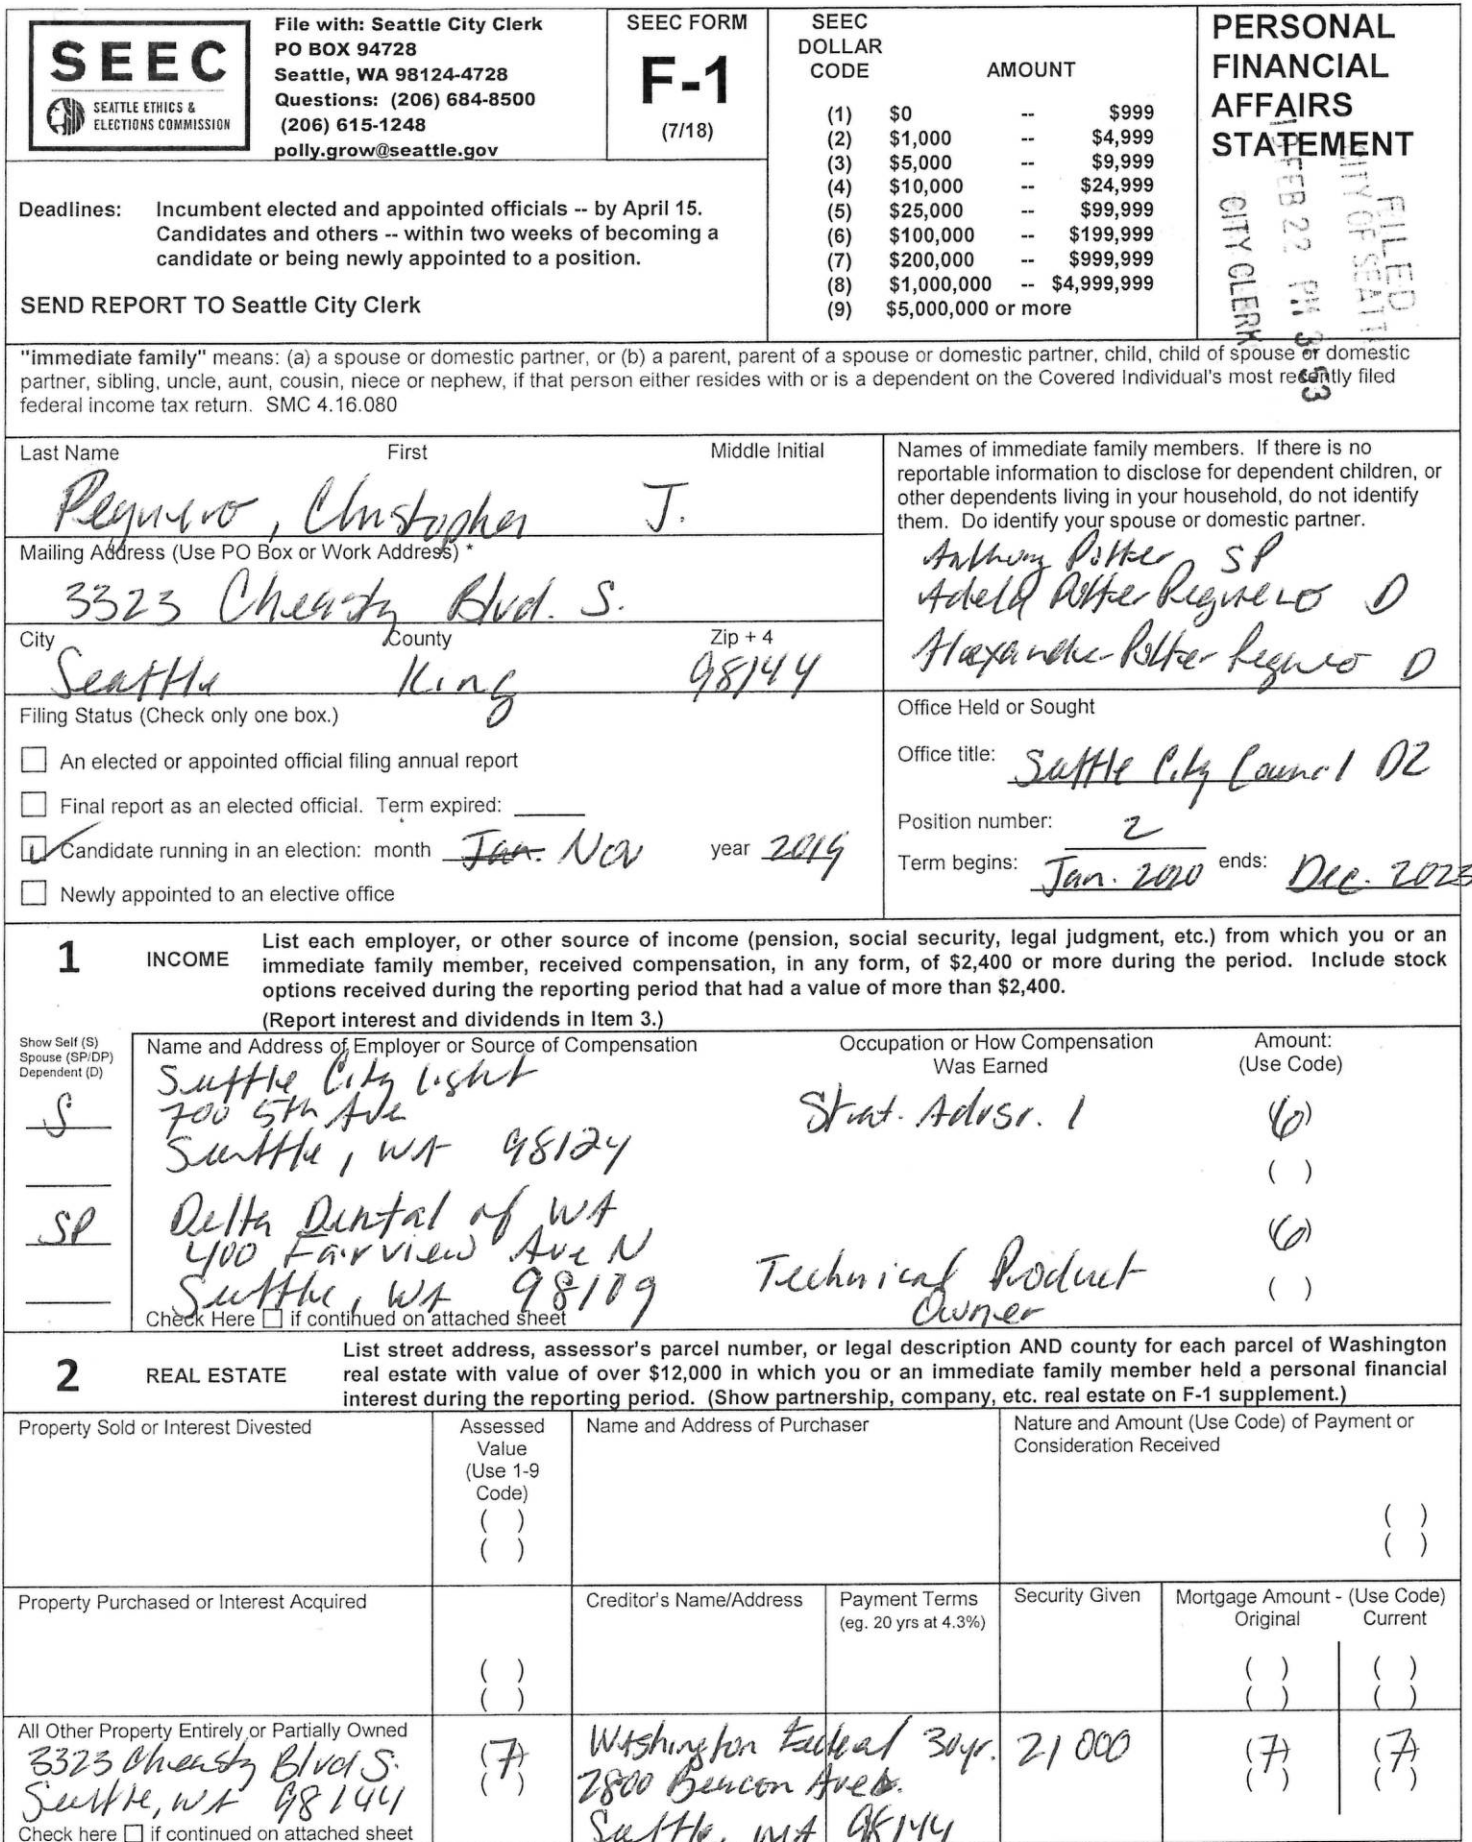 SEEC
SEATTLE ETHICS &
ELECTIONS COMMISSION
File with: Seattle City Clerk
PO BOX 94728
Seattle, WA 98124-4728
Questions: (206) 684-8500
(206) 615-1248
polly.grow@seattle.gov
SEEC FORM
F-1
(7/18)
SEEC
DOLLAR
CODE AMOUNT
(1) $0 -- $999
(2) $1,000 -- $4,999
(3) $5,000 -- $9,999
(4) $10,000 -- $24,999
(5) $25,000 -- $99,999
(6) $100,000 -- $199,999
(7) $200,000 -- $999,999
(8) $1,000,000 -- $4,999,999
(9) $5,000,000 or more
PERSONAL
FINANCIAL
AFFAIRS
STATEMENT
FILED
CITY OF SEATT
FEB 22 PM 3:53
CITY CLERK
Deadlines: Incumbent elected and appointed officials -- by April 15.
Candidates and others -- within two weeks of becoming a
candidate or being newly appointed to a position.
SEND REPORT TO Seattle City Clerk
"immediate family" means: (a) a spouse or domestic partner, or (b) a parent, parent of a spouse or domestic partner, child, child of spouse or domestic
partner, sibling, uncle, aunt, cousin, niece or nephew, if that person either resides with or is a dependent on the Covered Individual's most recently filed
federal income tax return. SMC 4.16.080
Last Name First Middle Initial
Peguero, Christopher J.
Mailing Address (Use PO Box or Work Address) *
3323 Cheasty Blvd. S.
City County Zip + 4
Seattle King 98144
Names of immediate family members. If there is no
reportable information to disclose for dependent children, or
other dependents living in your household, do not identify
them. Do identify your spouse or domestic partner.
Anthony Potter SP
Adela Potter Peguero D
Alexander Potter Peguero D
Filing Status (Check only one box.)
An elected or appointed official filing annual report
Final report as an elected official. Term expired:
Candidate running in an election: month Jan. Nov year 2019
Newly appointed to an elective office
Office Held or Sought
Office title: Seattle City Council D2
Position number: 2
Term begins: Jan. 2020 ends: Dec. 2023
1 INCOME List each employer, or other source of income (pension, social security, legal judgment, etc.) from which you or an
immediate family member, received compensation, in any form, of $2,400 or more during the period. Include stock
options received during the reporting period that had a value of more than $2,400.
(Report interest and dividends in Item 3.)
Show Self (S)
Spouse (SP/DP)
Dependent (D)
Name and Address of Employer or Source of Compensation
Occupation or How Compensation
Was Earned
Amount:
(Use Code)
S Seattle City Light
700 5th Ave Strat. Advsr. 1 (6)
Seattle, WA 98124
( )
SP Delta Dental of WA (6)
400 Fairview Ave N
Seattle, WA 98109 Technical Product ( )
Owner
Check Here if continued on attached sheet
2 REAL ESTATE List street address, assessor's parcel number, or legal description AND county for each parcel of Washington
real estate with value of over $12,000 in which you or an immediate family member held a personal financial
interest during the reporting period. (Show partnership, company, etc. real estate on F-1 supplement.)
Property Sold or Interest Divested
Assessed
Value
(Use 1-9
Code)
( )
( )
Name and Address of Purchaser
Nature and Amount (Use Code) of Payment or
Consideration Received
( )
( )
Property Purchased or Interest Acquired
( )
( )
Creditor's Name/Address
Payment Terms
(eg. 20 yrs at 4.3%)
Security Given
Mortgage Amount - (Use Code)
Original Current
( ) ( )
( ) ( )
All Other Property Entirely or Partially Owned
3323 Cheasty Blvd S. (7)
Seattle, WA 98144 ( )
Washington Federal 30yr. 21 000 (7) (7)
2800 Beacon Ave S. ( ) ( )
Seattle, WA 98144
Check here if continued on attached sheet